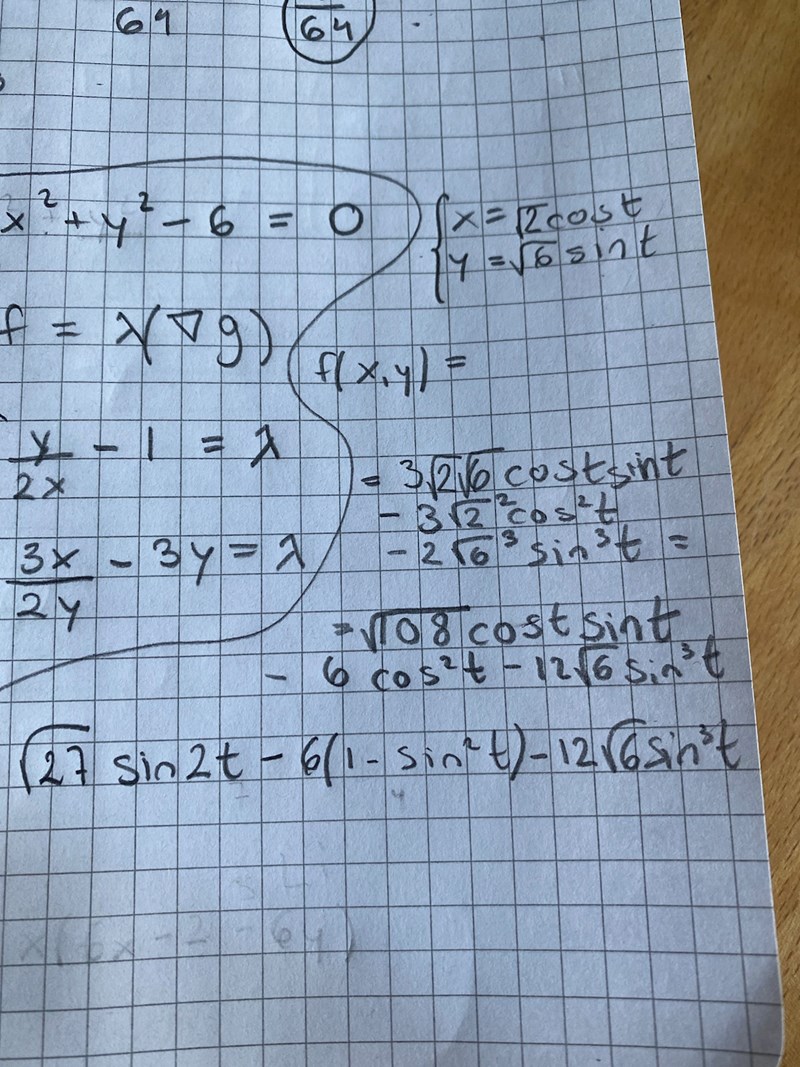 64 64
x² + y² - 6 = 0
{ x = √2 cost
y = √6 sint
f = λ(∇g)
f(x,y) =
y/2x - 1 = λ
= 3√2√6 cost sint
- 3√2² cos²t
- 2√6³ sin³t =
3x/2y - 3y = λ
= √108 cost sint
- 6 cos²t - 12√6 sin³t
√27 sin2t - 6(1 - sin²t) - 12√6 sin³t